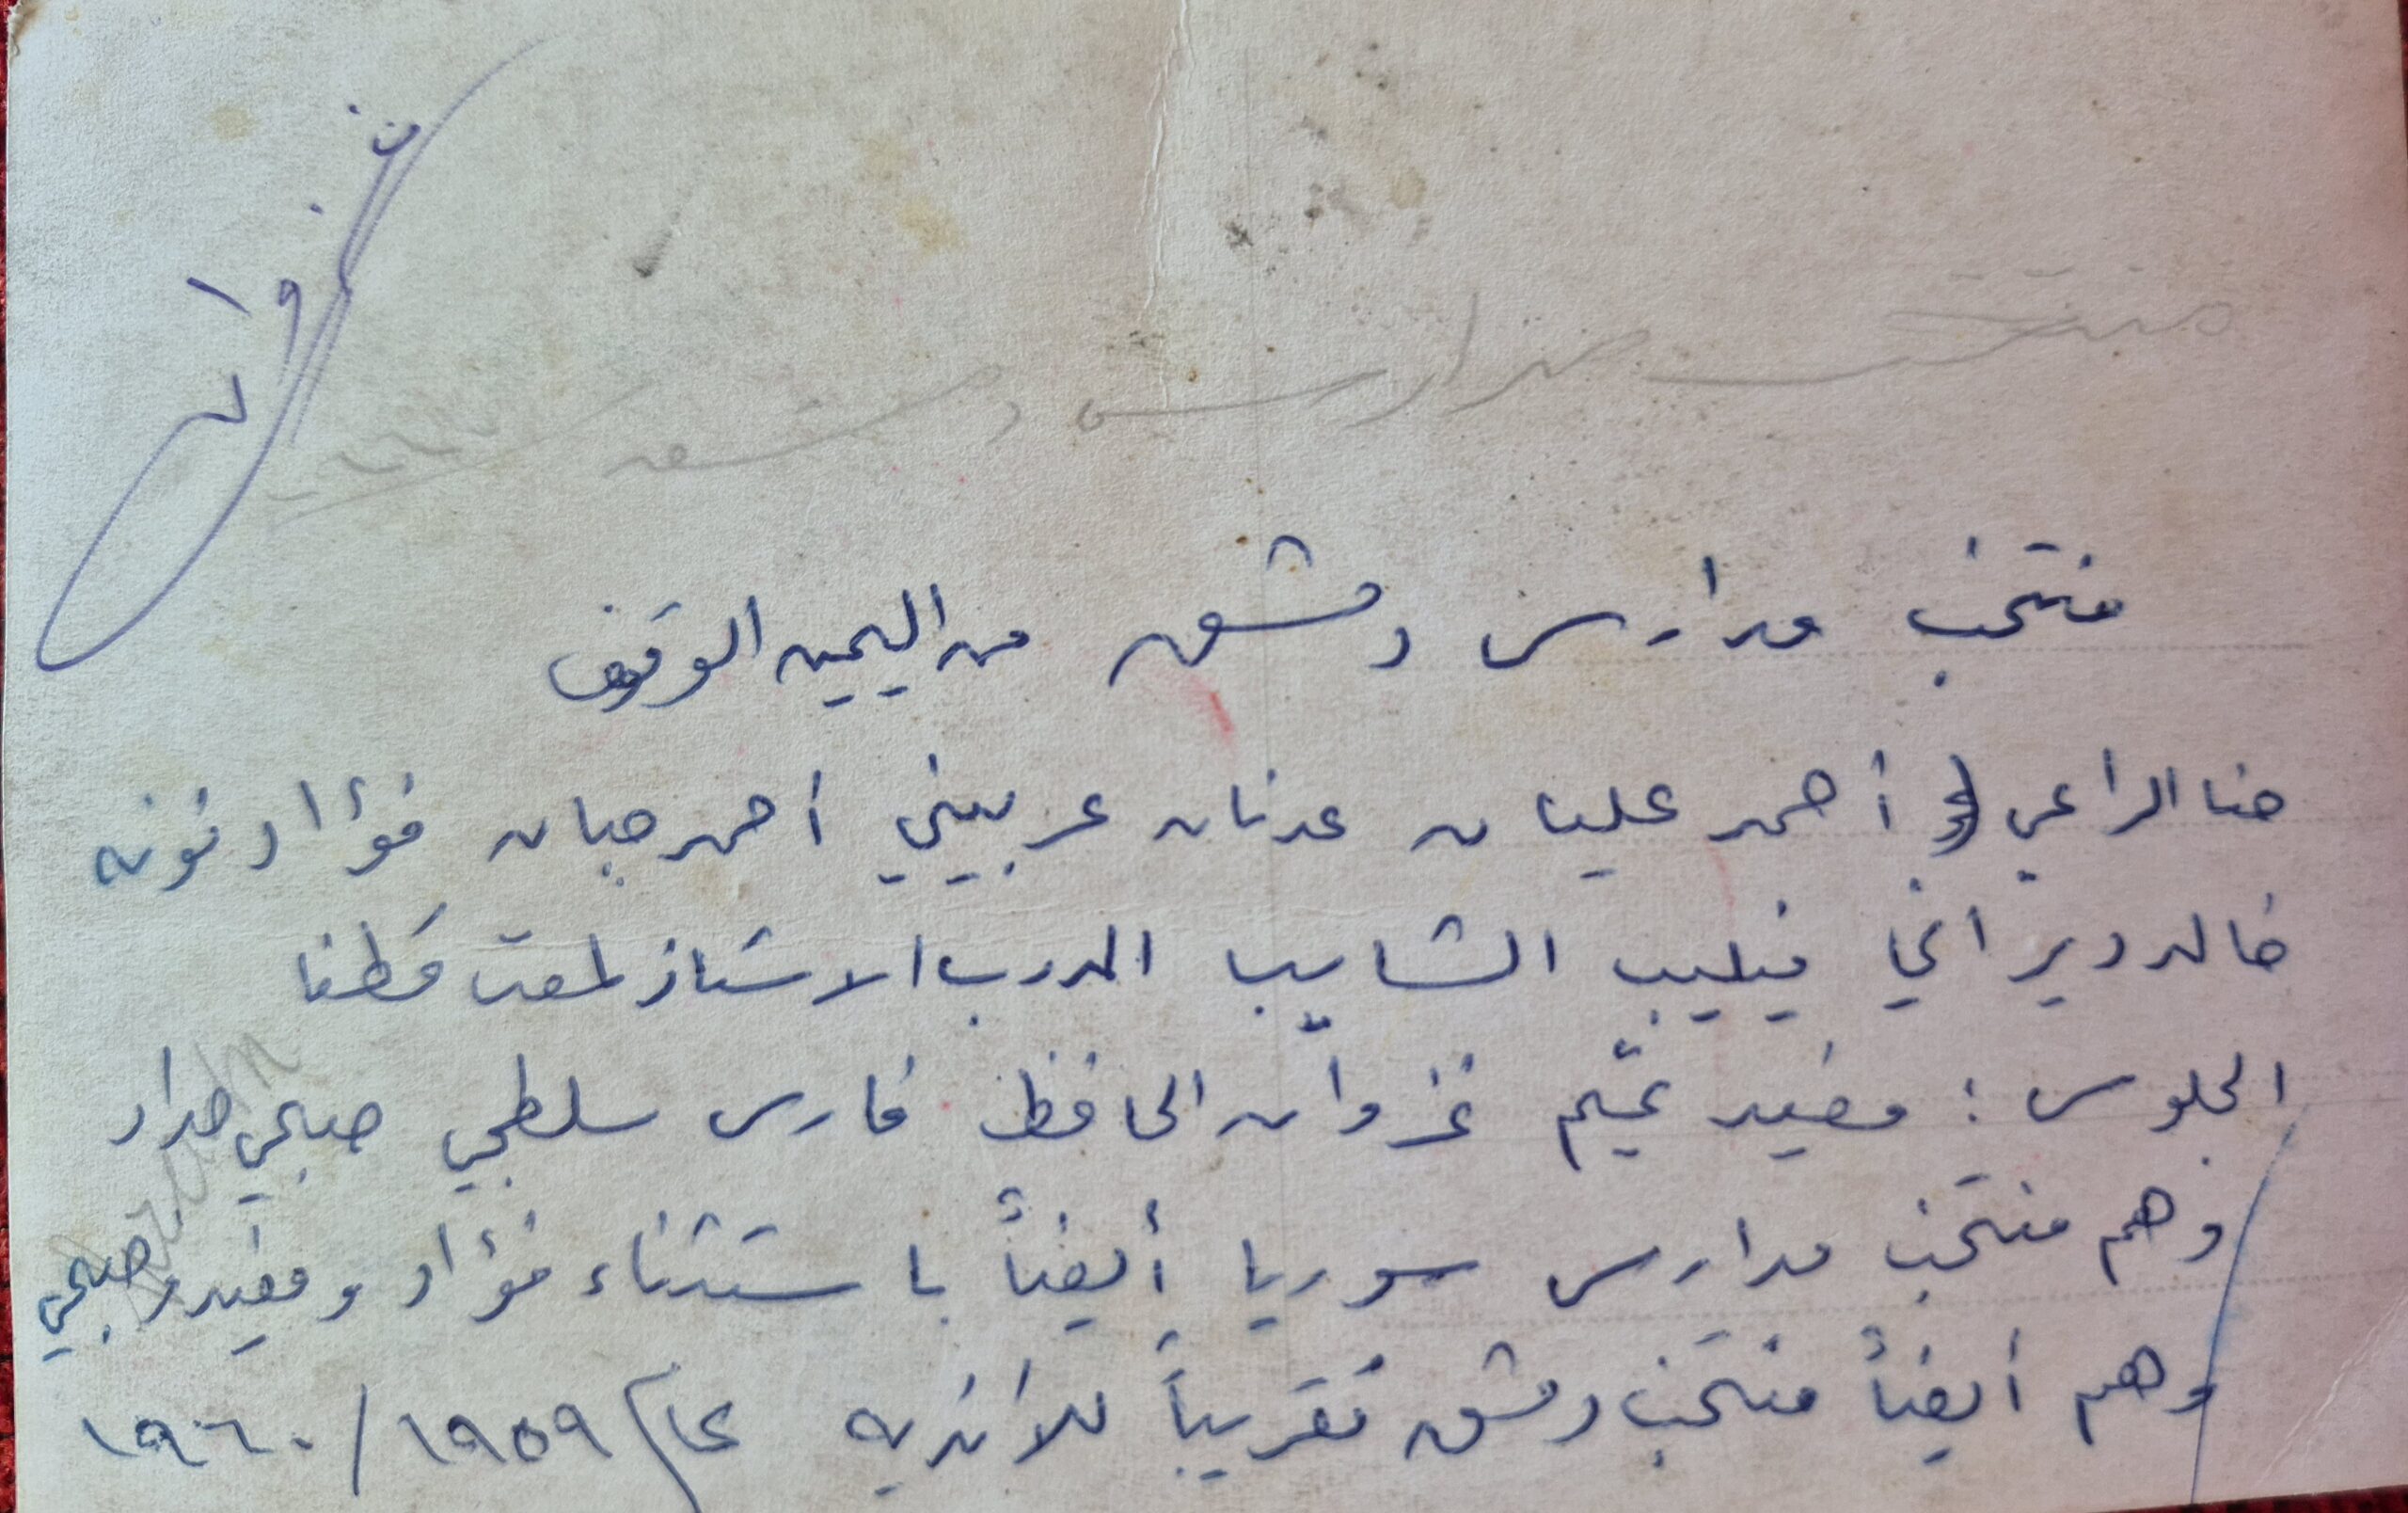 غزوان
منتخب مدارس دمشق
منتخب مدارس دمشق من اليمين الوقوف
حنا الراعي أحمد عليان عدنان عربيني أحمد جبان فؤاد نونه
خالد ديراني فيليب الشايب المدرب الاستاذ لمعت قطنا
الجلوس : مفيد تميم غزوان الحافظ فارس سلطجي صبحي حداد
وهم منتخب مدارس سوريا أيضاً باستثناء فؤاد ومفيد وصبحي
وهم أيضاً منتخب دمشق تقريباً للأندية عام ١٩٥٩/١٩٦٠